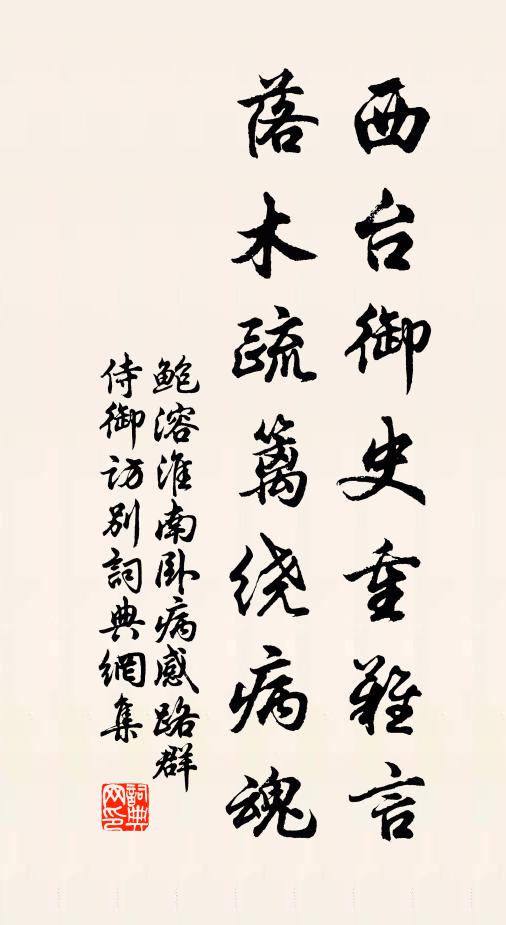 西台御史重难言
落木疏篱绕病魂
鲍溶淮南卧病感路群
侍御访别詞典網集
詞典网印